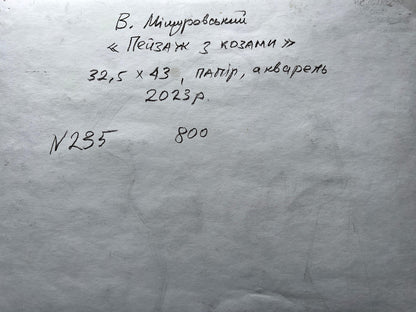 В. Мішуровський
« Пейзаж з козами »
32,5 × 43, папір, акварель
2023 р.
N 235 800